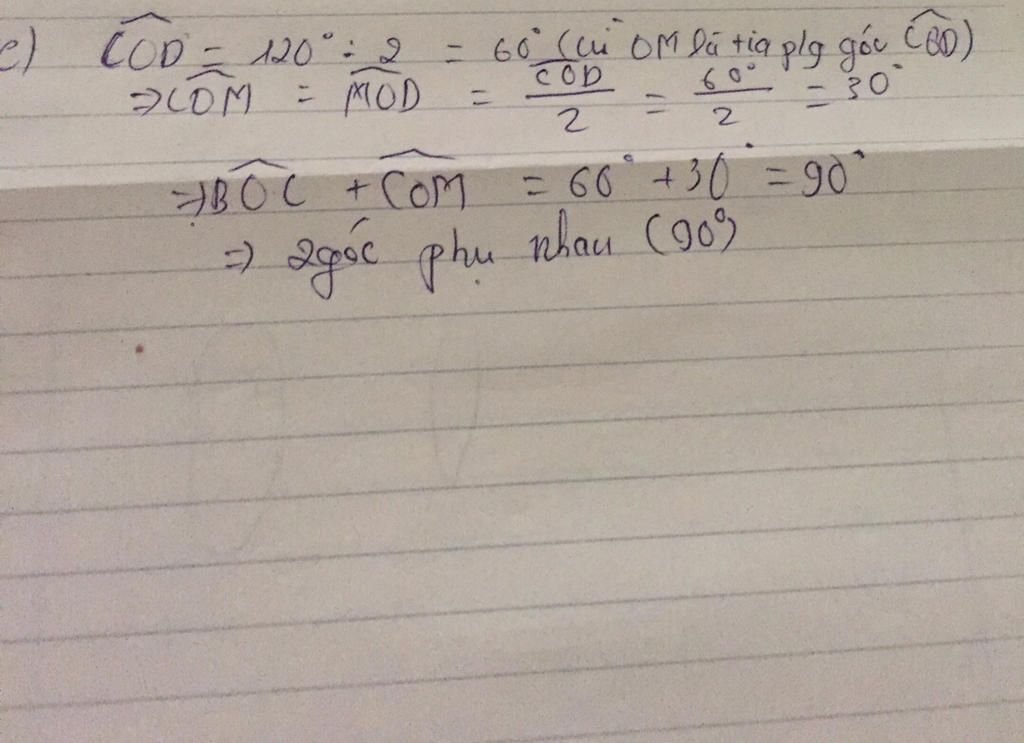 c) COD = 120° : 2 = 60° (vì OM là tia p/g góc COD)
⇒ COM = MOD = COD/2 = 60°/2 = 30°
⇒ BOC + COM = 60° + 30° = 90°
⇒ 2 góc phụ nhau (90°)